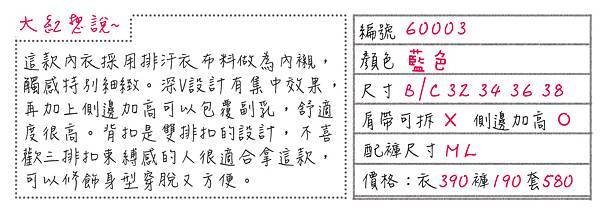 大紅想說~
這款內衣採用排汗衣布料做為內襯，
觸感特別細緻。深V設計有集中效果，
再加上側邊加高可以包覆副乳，舒適
度很高。背扣是雙排扣的設計，不喜
歡三排扣束縛感的人很適合拿這款，
可以修飾身型穿脫又方便。
編號 60003
顏色 藍色
尺寸 B/C 32 34 36 38
肩帶可拆 X 側邊加高 O
配褲尺寸 ML
價格：衣390褲190套580